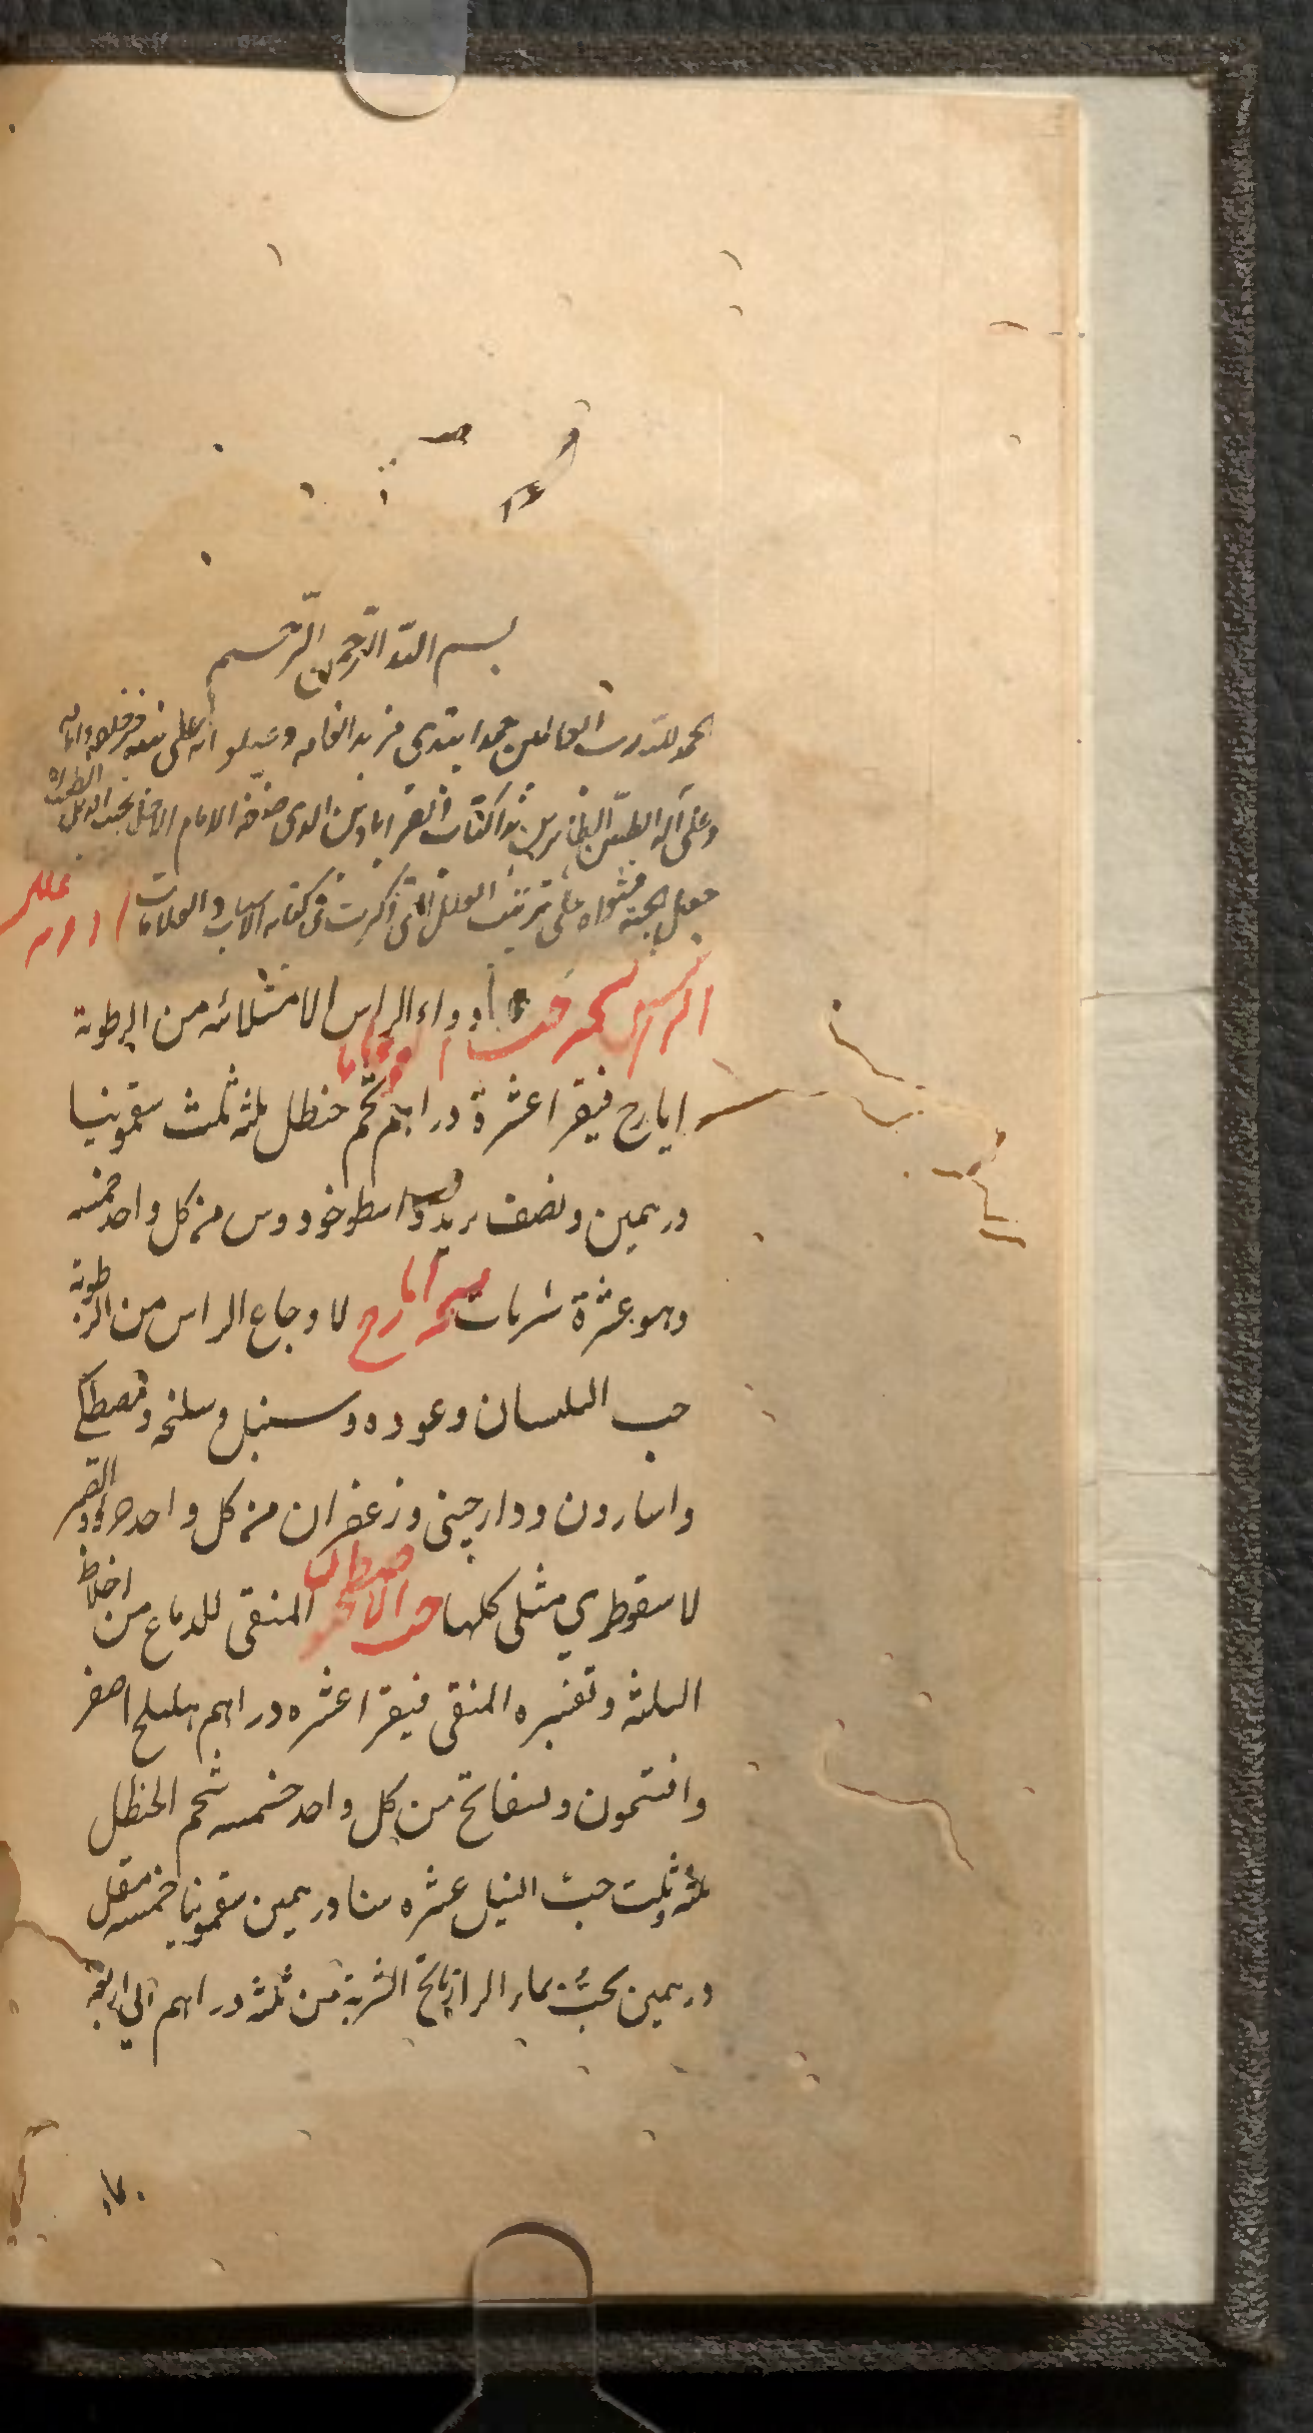 بسم الله الرحمن الرحيم
الحمد لله رب العالمين حمدا على
وعلى آله الطيبين الطاهرين هذا كتاب القراباذين الذي صنفه الامام الاجل نجيب الدين
جعل الجنة مثواه على ترتيب العلل التي ذكرت في كتابه الاسباب والعلامات ادوية علل
الراس نسخة حب لادواء الراس الامتلائه من الرطوبة
ايارج فيقرا عشرة دراهم شحم حنظل ثلثه ثلث سقمونيا
درهمين ونصف تربد واسطوخودوس من كل واحد خمسه
وهو عشرة شربات نسخة ايارج لاوجاع الراس من الرطوبة
حب البلسان وعوده وسنبل وسليخه ومصطكي
واسارون ودارچيني وزعفران من كل واحد جزء
لاسقوطري مثلي كلها حب الاصطمخيقون المنقى للدماغ من اخلاط
الثلثه وتفسيره المنقى فيقرا عشره دراهم هليلج اصفر
وافتيمون وبسفائج من كل واحد خمسه شحم الحنظل
ثلثه وثلث حب النيل عشره درهمين سقمونيا خمسه مقل
درهمين يحبب بماء الرازيانج الشربة من ثلثه دراهم الى اربعة